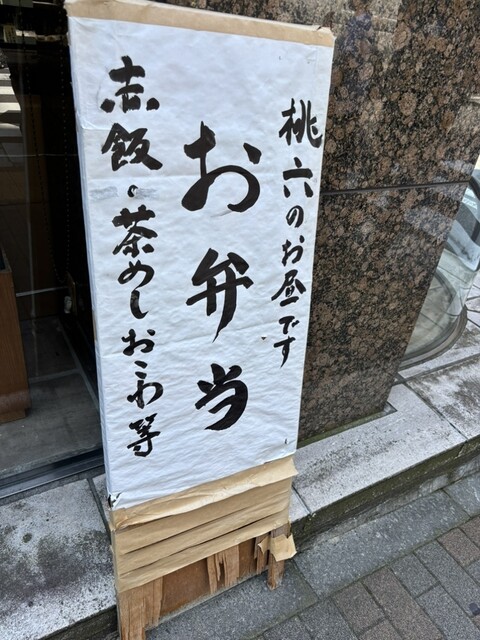 桃六のお昼です
お弁当
赤飯・茶めしおこわ等